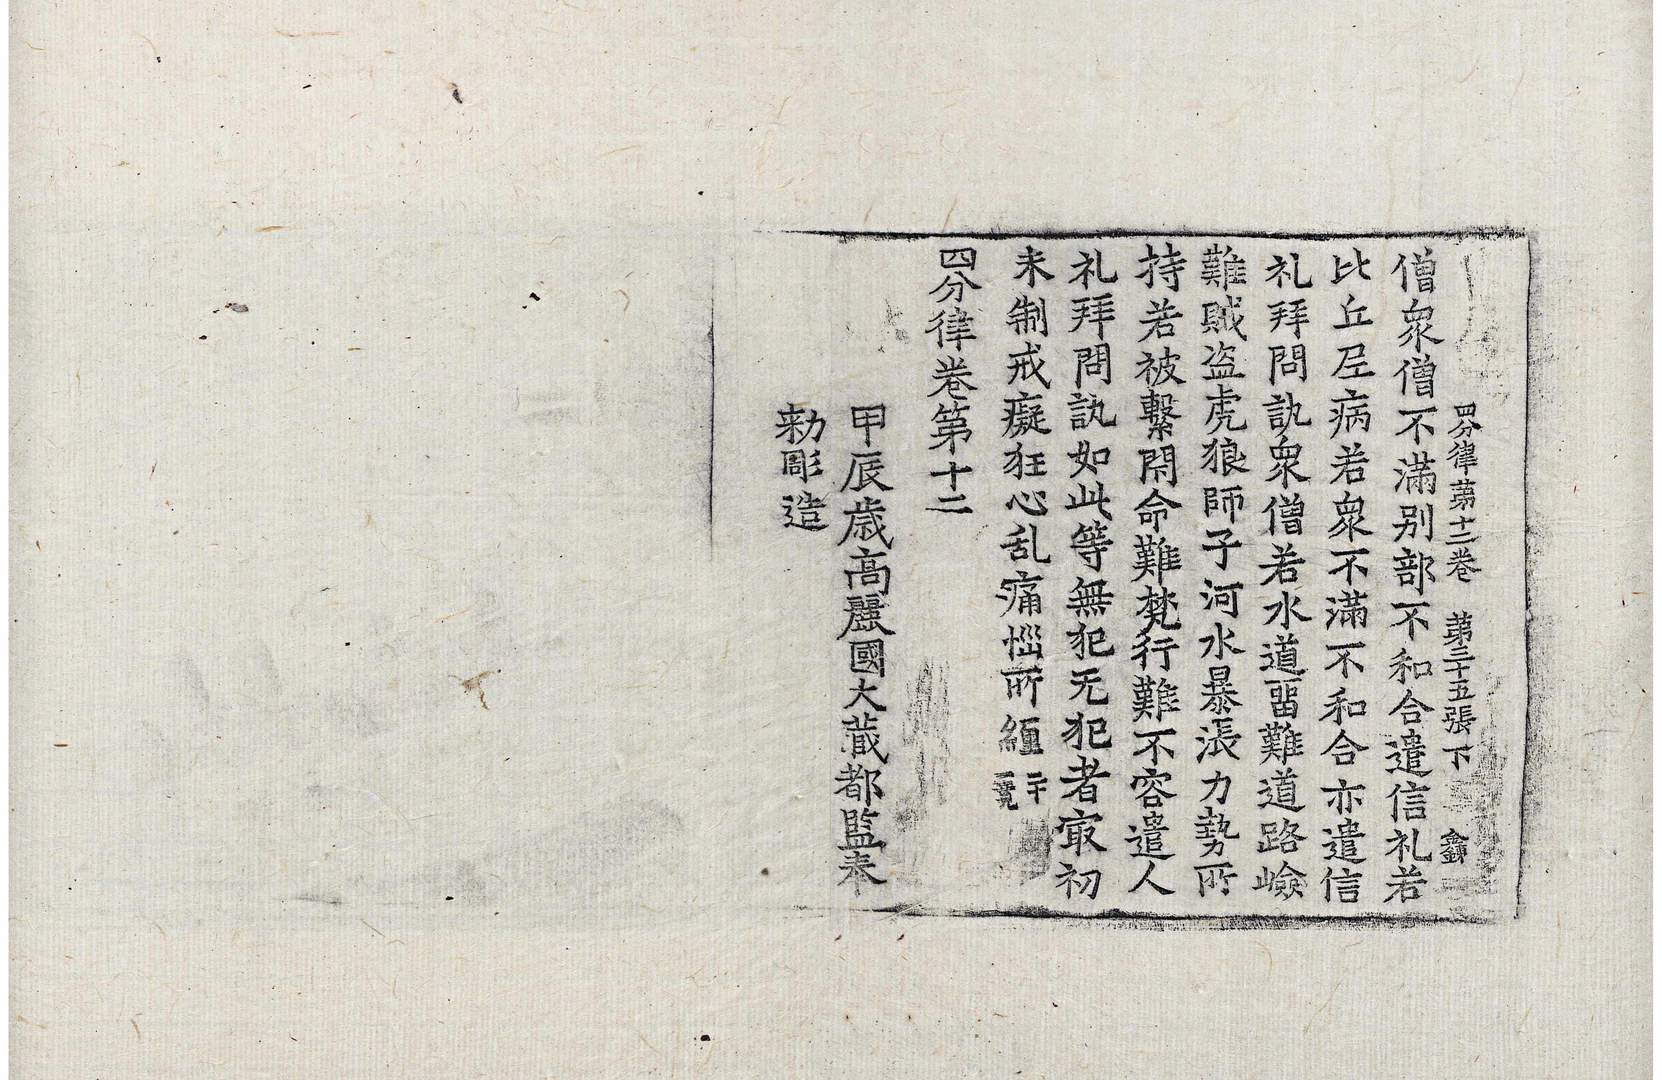 四分律苐十二卷 苐三十五張 下
僧衆僧不滿别部不和合遣信礼若
比丘尼病若衆不滿不和合亦遣信
礼拜問訊衆僧若水道留難道路嶮
難賊盗虎狼師子河水暴漲力勢所
持若被繫閇命難梵行難不容遣人
礼拜問訊如此等無犯无犯者㝡初
未制戒癡狂心乱痛惱所纒
四分律卷第十二
甲辰歳高麗國大藏都監奉
勑彫造